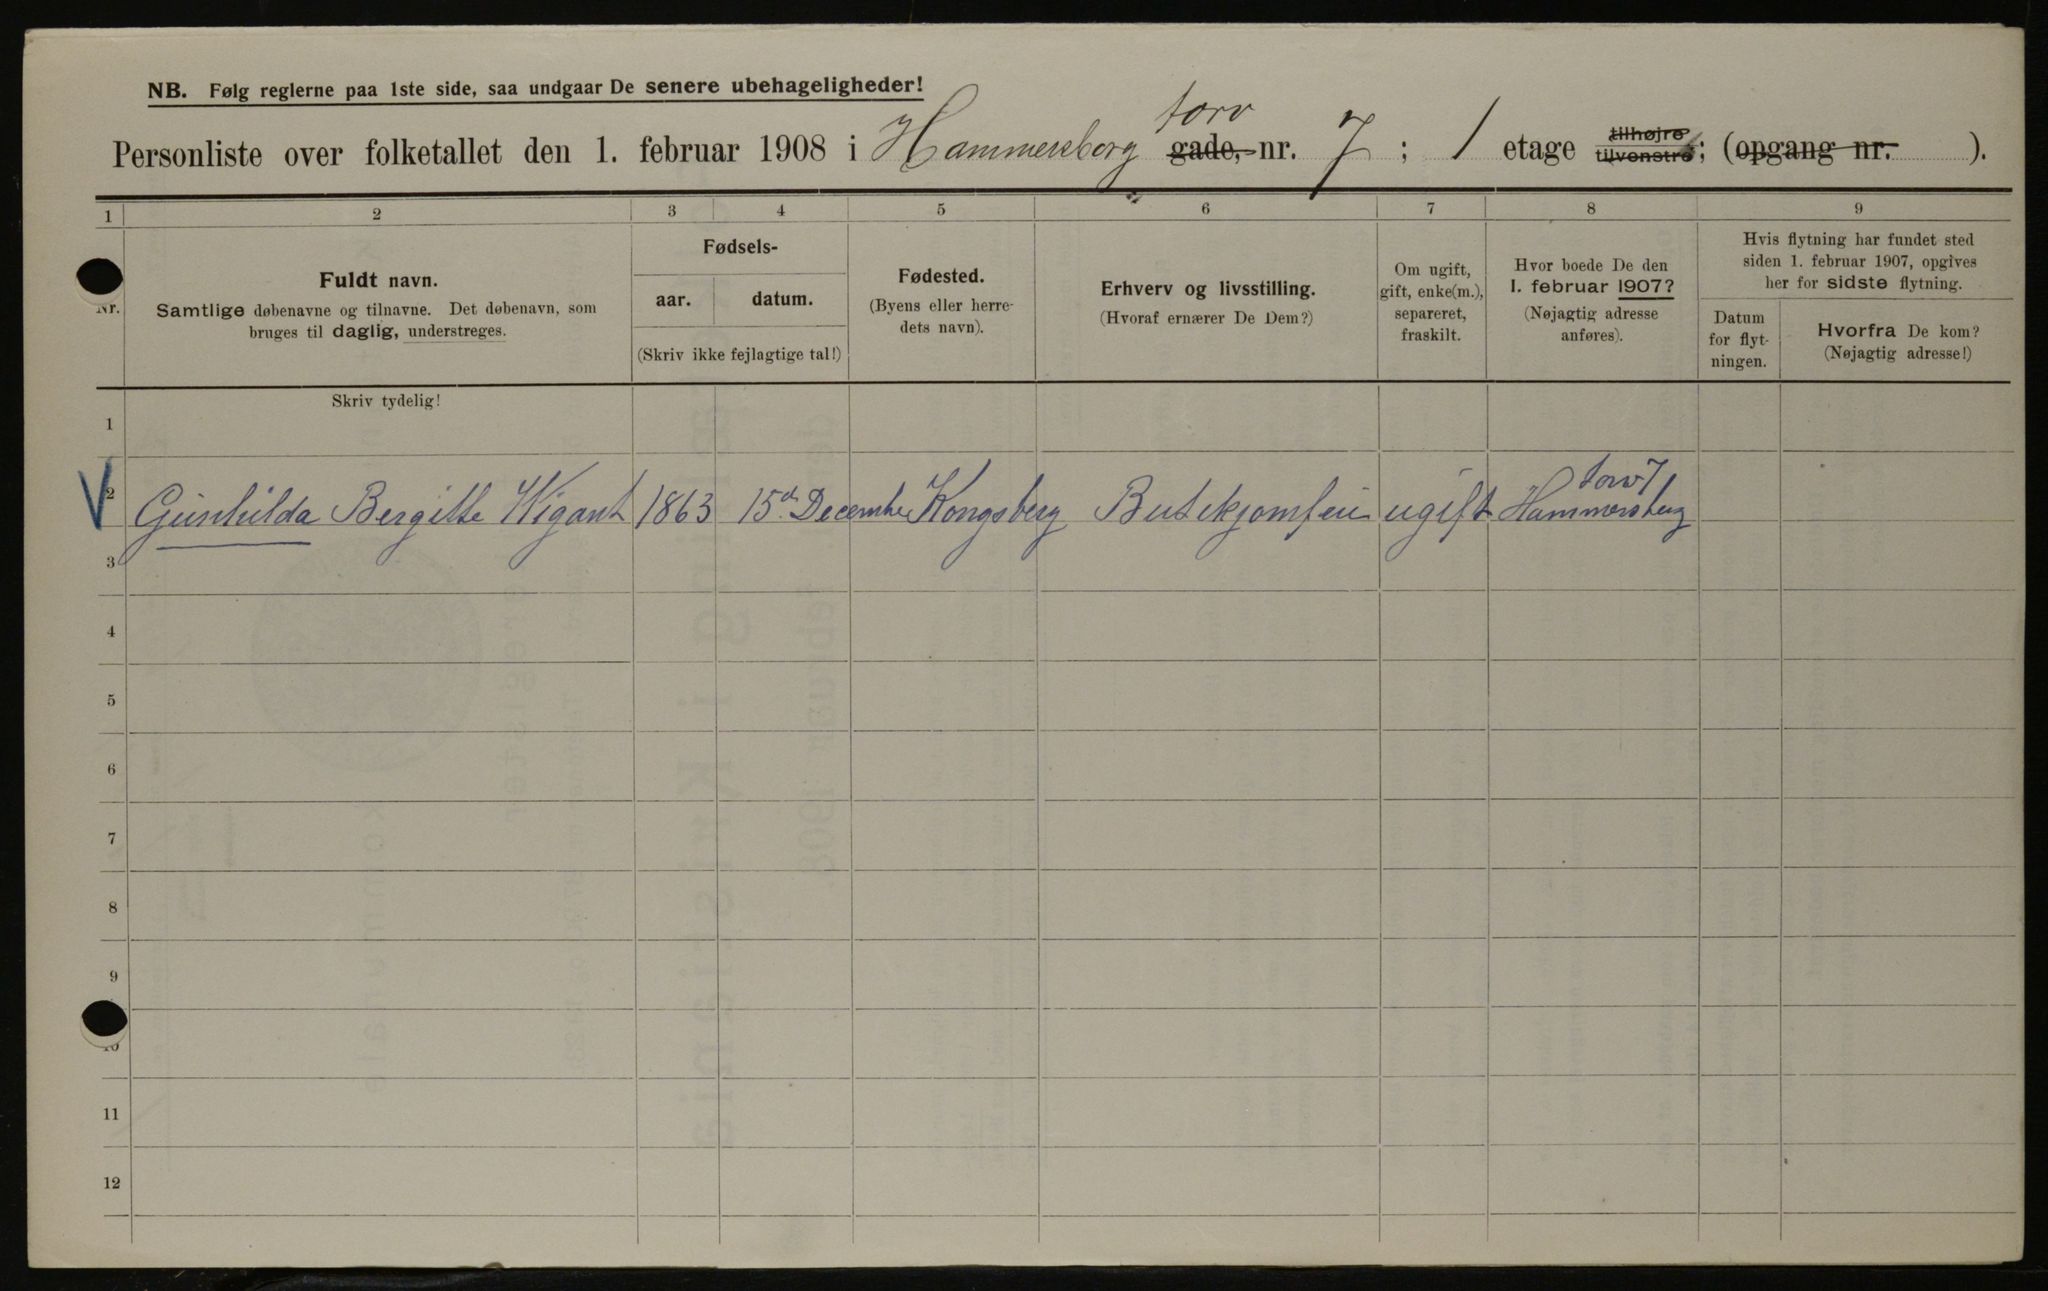 NB. Følg reglerne paa 1ste side, saa undgaar De senere ubehageligheder!
torv
Personliste over folketallet den 1. februar 1908 i Hammersborg gade, nr. 7; 1 etage tilhøjre tilvenstre; (opgang nr. ).
1 2 3 4 5 6 7 8 9
Nr.
Fuldt navn.
Samtlige døbenavne og tilnavne. Det døbenavn, som
bruges til daglig, understreges.
Fødsels-
aar. datum.
(Skriv ikke fejlagtige tal!)
Fødested.
(Byens eller herre-
dets navn).
Erhverv og livsstilling.
(Hvoraf ernærer De Dem?)
Om ugift,
gift, enke(m.),
separeret,
fraskilt.
Hvor boede De den
1. februar 1907?
(Nøjagtig adresse
anføres).
Hvis flytning har fundet sted
siden 1. februar 1907, opgives
her for sidste flytning.
Datum
for flyt-
ningen.
Hvorfra De kom?
(Nøjagtig adresse!)
Skriv tydelig!
1
torv 7
V 2 Gunhilda Bergitte Wigant 1863 15d Decembe Kongsberg Butikjomfru ugift Hammersborg
3
4
5
6
7
8
9
10
11
12